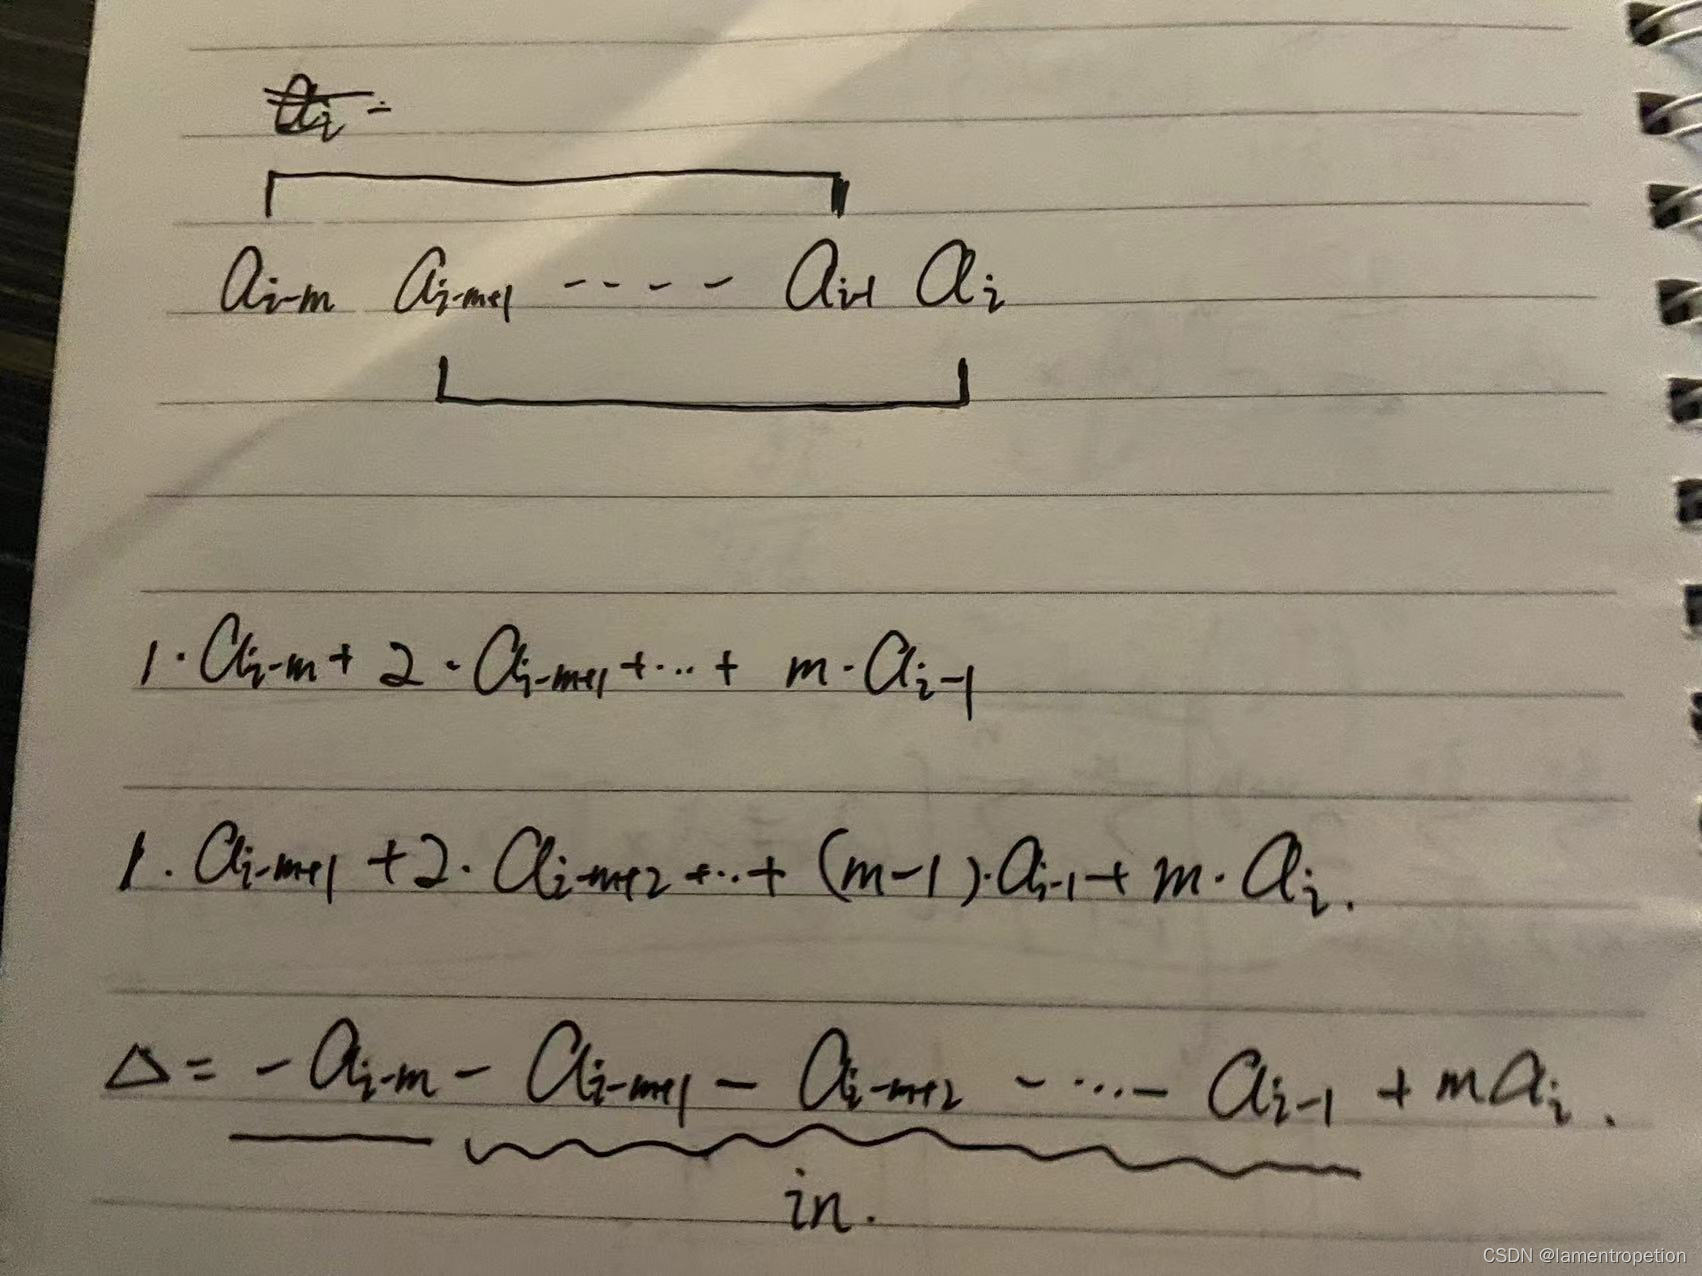 a_i =
a_{i-m} a_{i-m+1} ---- a_{i-1} a_i
1·a_{i-m} + 2·a_{i-m+1} +···+ m·a_{i-1}
1·a_{i-m+1} + 2·a_{i-m+2} +···+ (m-1)·a_{i-1} + m·a_i.
Δ = -a_{i-m} - a_{i-m+1} - a_{i-m+2} -···- a_{i-1} + ma_i.
in.
CSDN @lamentropetion